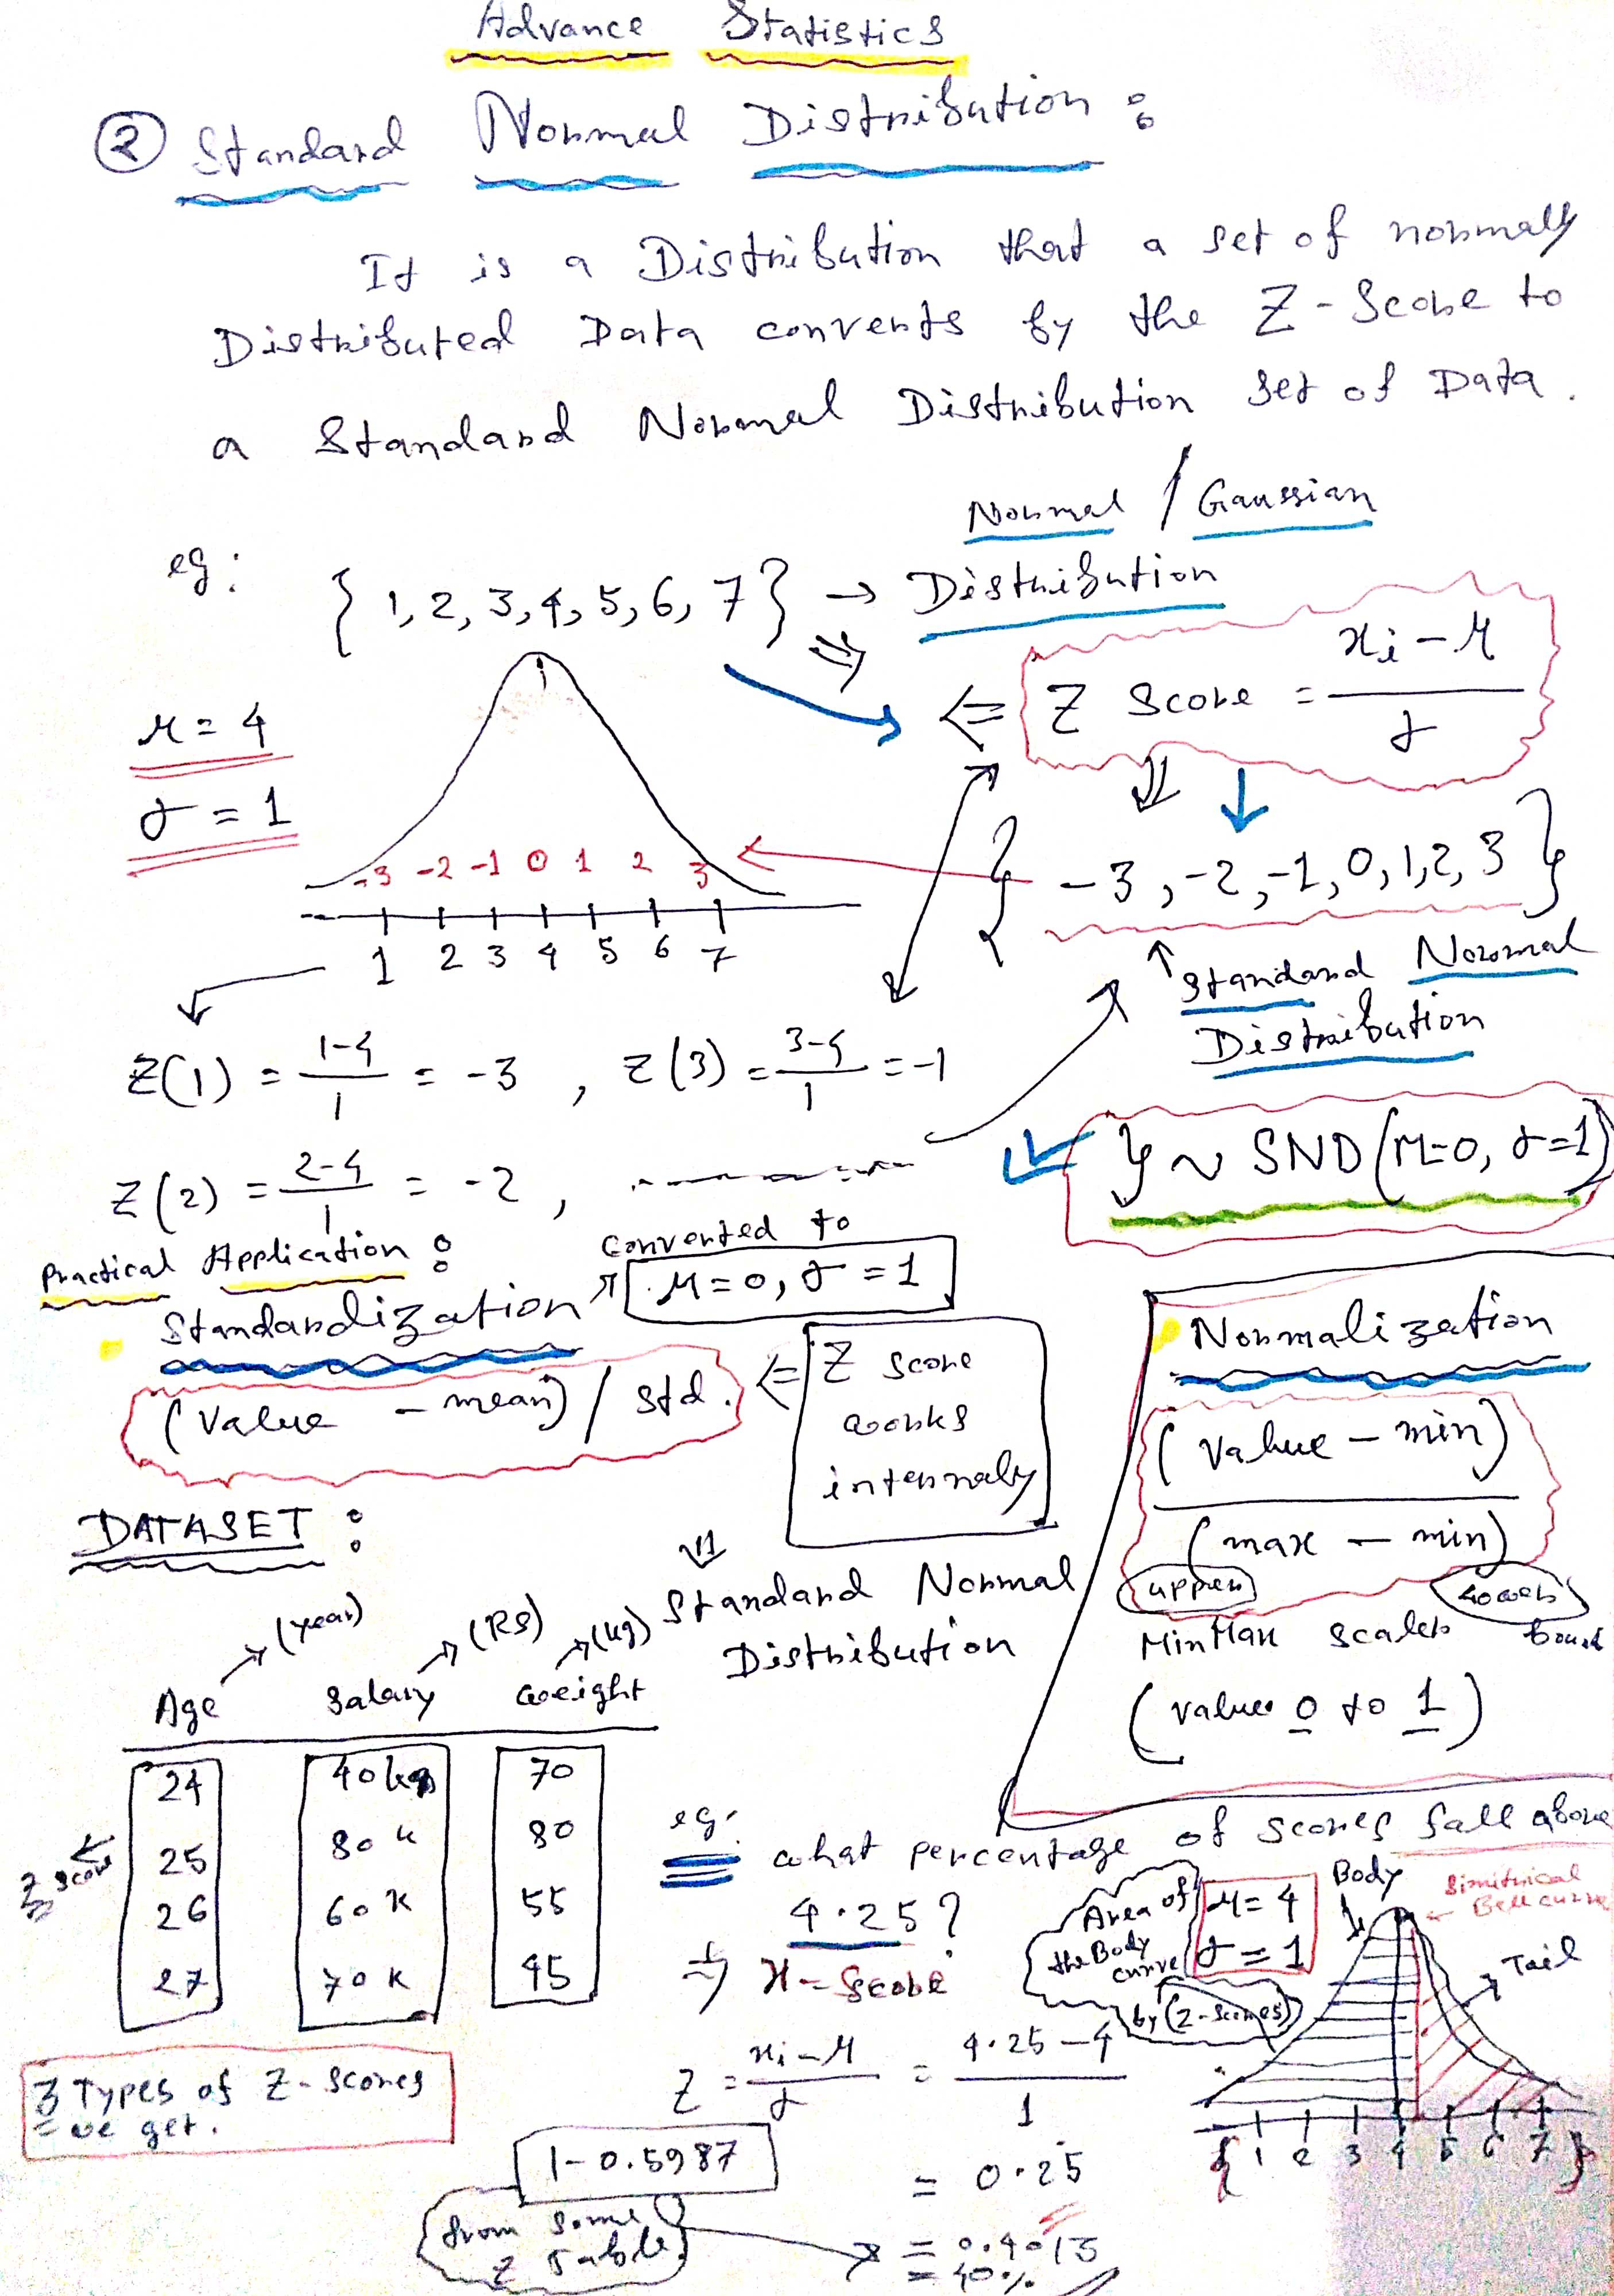 Advance Statistics
② Standard Normal Distribution :
It is a Distribution that a set of normally
Distributed Data converts by the Z-Score to
a Standard Normal Distribution set of Data.
eg: { 1, 2, 3, 4, 5, 6, 7 } → Normal / Gaussian
Distribution
⇒
⇐ Z Score = xi - μ / σ
μ = 4
σ = 1
-3 -2 -1 0 1 2 3
1 2 3 4 5 6 7
{ -3, -2, -1, 0, 1, 2, 3 }
↑ Standard Normal
Distribution
Z(1) = 1-4 / 1 = -3 , Z(3) = 3-4 / 1 = -1
Z(2) = 2-4 / 1 = -2 ,
y ~ SND (μ=0, σ=1)
Practical Application :
Converted to
μ=0, σ=1
Standardization
(Value - mean) / Std.
⇐ Z score
works
internaly
Standard Normal
Distribution
Normalization
(Value - min)
(max - min)
upper lower
MinMax scaler
(values 0 to 1)
DATASET :
(year) (RS) (kg)
Age Salary Weight
24 70
25 80 80
26 60 K 55
27 70 K 45
Z score
3 Types of Z-scores
we get.
eg. what percentage of scores fall above
4.25 ?
⇒ x-Score
Area of
the Body
curve
by (Z-scores)
μ = 4
σ = 1
Body
Simitrical
Bell curve
Tail
{ 1 2 3 4 5 6 7 }
Z = xi - μ / σ = 4.25 - 4 / 1
= 0.25
1 - 0.5987
from some
Z table
= 0.4013
= 40%